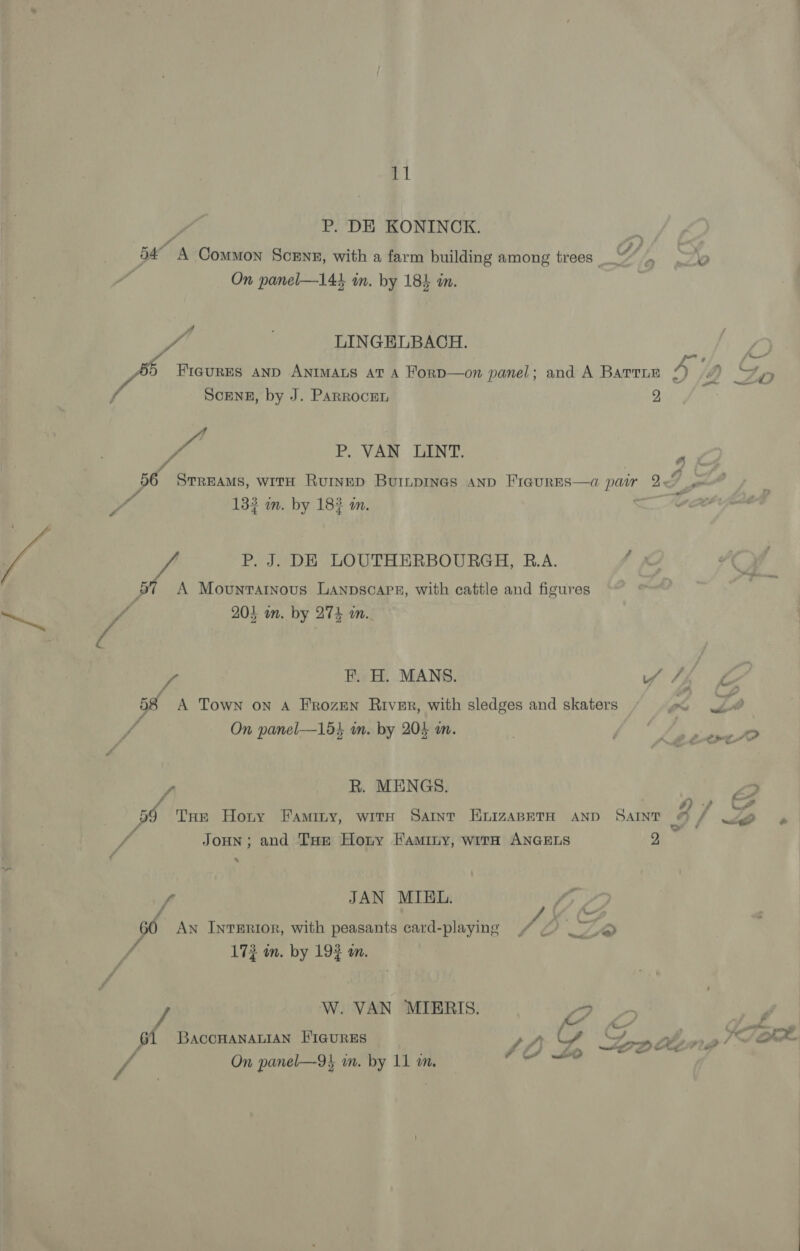 11
P. DE KONINCK.
54 A Common Scene, with a farm building among trees
On panel—14½ in. by 18½ in.
LINGELBACH.
55 Figures and Animals at a Ford—on panel; and A Battle
Scene, by J. Parrocel 2
P. VAN LINT.
56 Streams, with Ruined Buildings and Figures—a pair 2
13¾ in. by 18¾ in.
P. J. DE LOUTHERBOURGH, R.A.
57 A Mountainous Landscape, with cattle and figures
20½ in. by 27½ in.
F. H. MANS.
58 A Town on a Frozen River, with sledges and skaters
On panel—15½ in. by 20½ in.
R. MENGS.
59 The Holy Family, with Saint Elizabeth and Saint
John; and The Holy Family, with Angels 2
JAN MIEL.
60 An Interior, with peasants card-playing
17¾ in. by 19¾ in.
W. VAN MIERIS.
61 Bacchanalian Figures
On panel—9½ in. by 11 in.